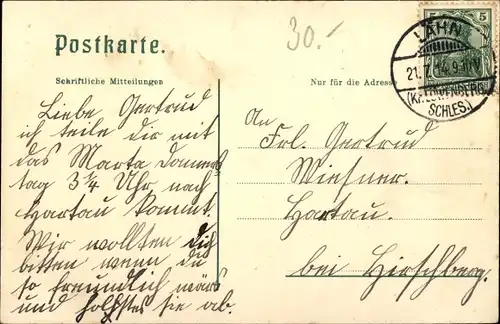 Postkarte.
30.-
5 5
LÄHN
21.
14.9-10V
(KR. LÖWENBERG
SCHLES.)
Schriftliche Mitteilungen
Nur für die Adresse
Liebe Gertrud
ich teile dir mit
das Marta Donners
tag 3¼ Uhr nach
Hartau kommt.
Wir wollten dich
bitten wenn du
so freundlich wärs
und holstes sie ab.
An
Frl. Gertrud
Wiesner.
Hartau.
bei Hirschberg.